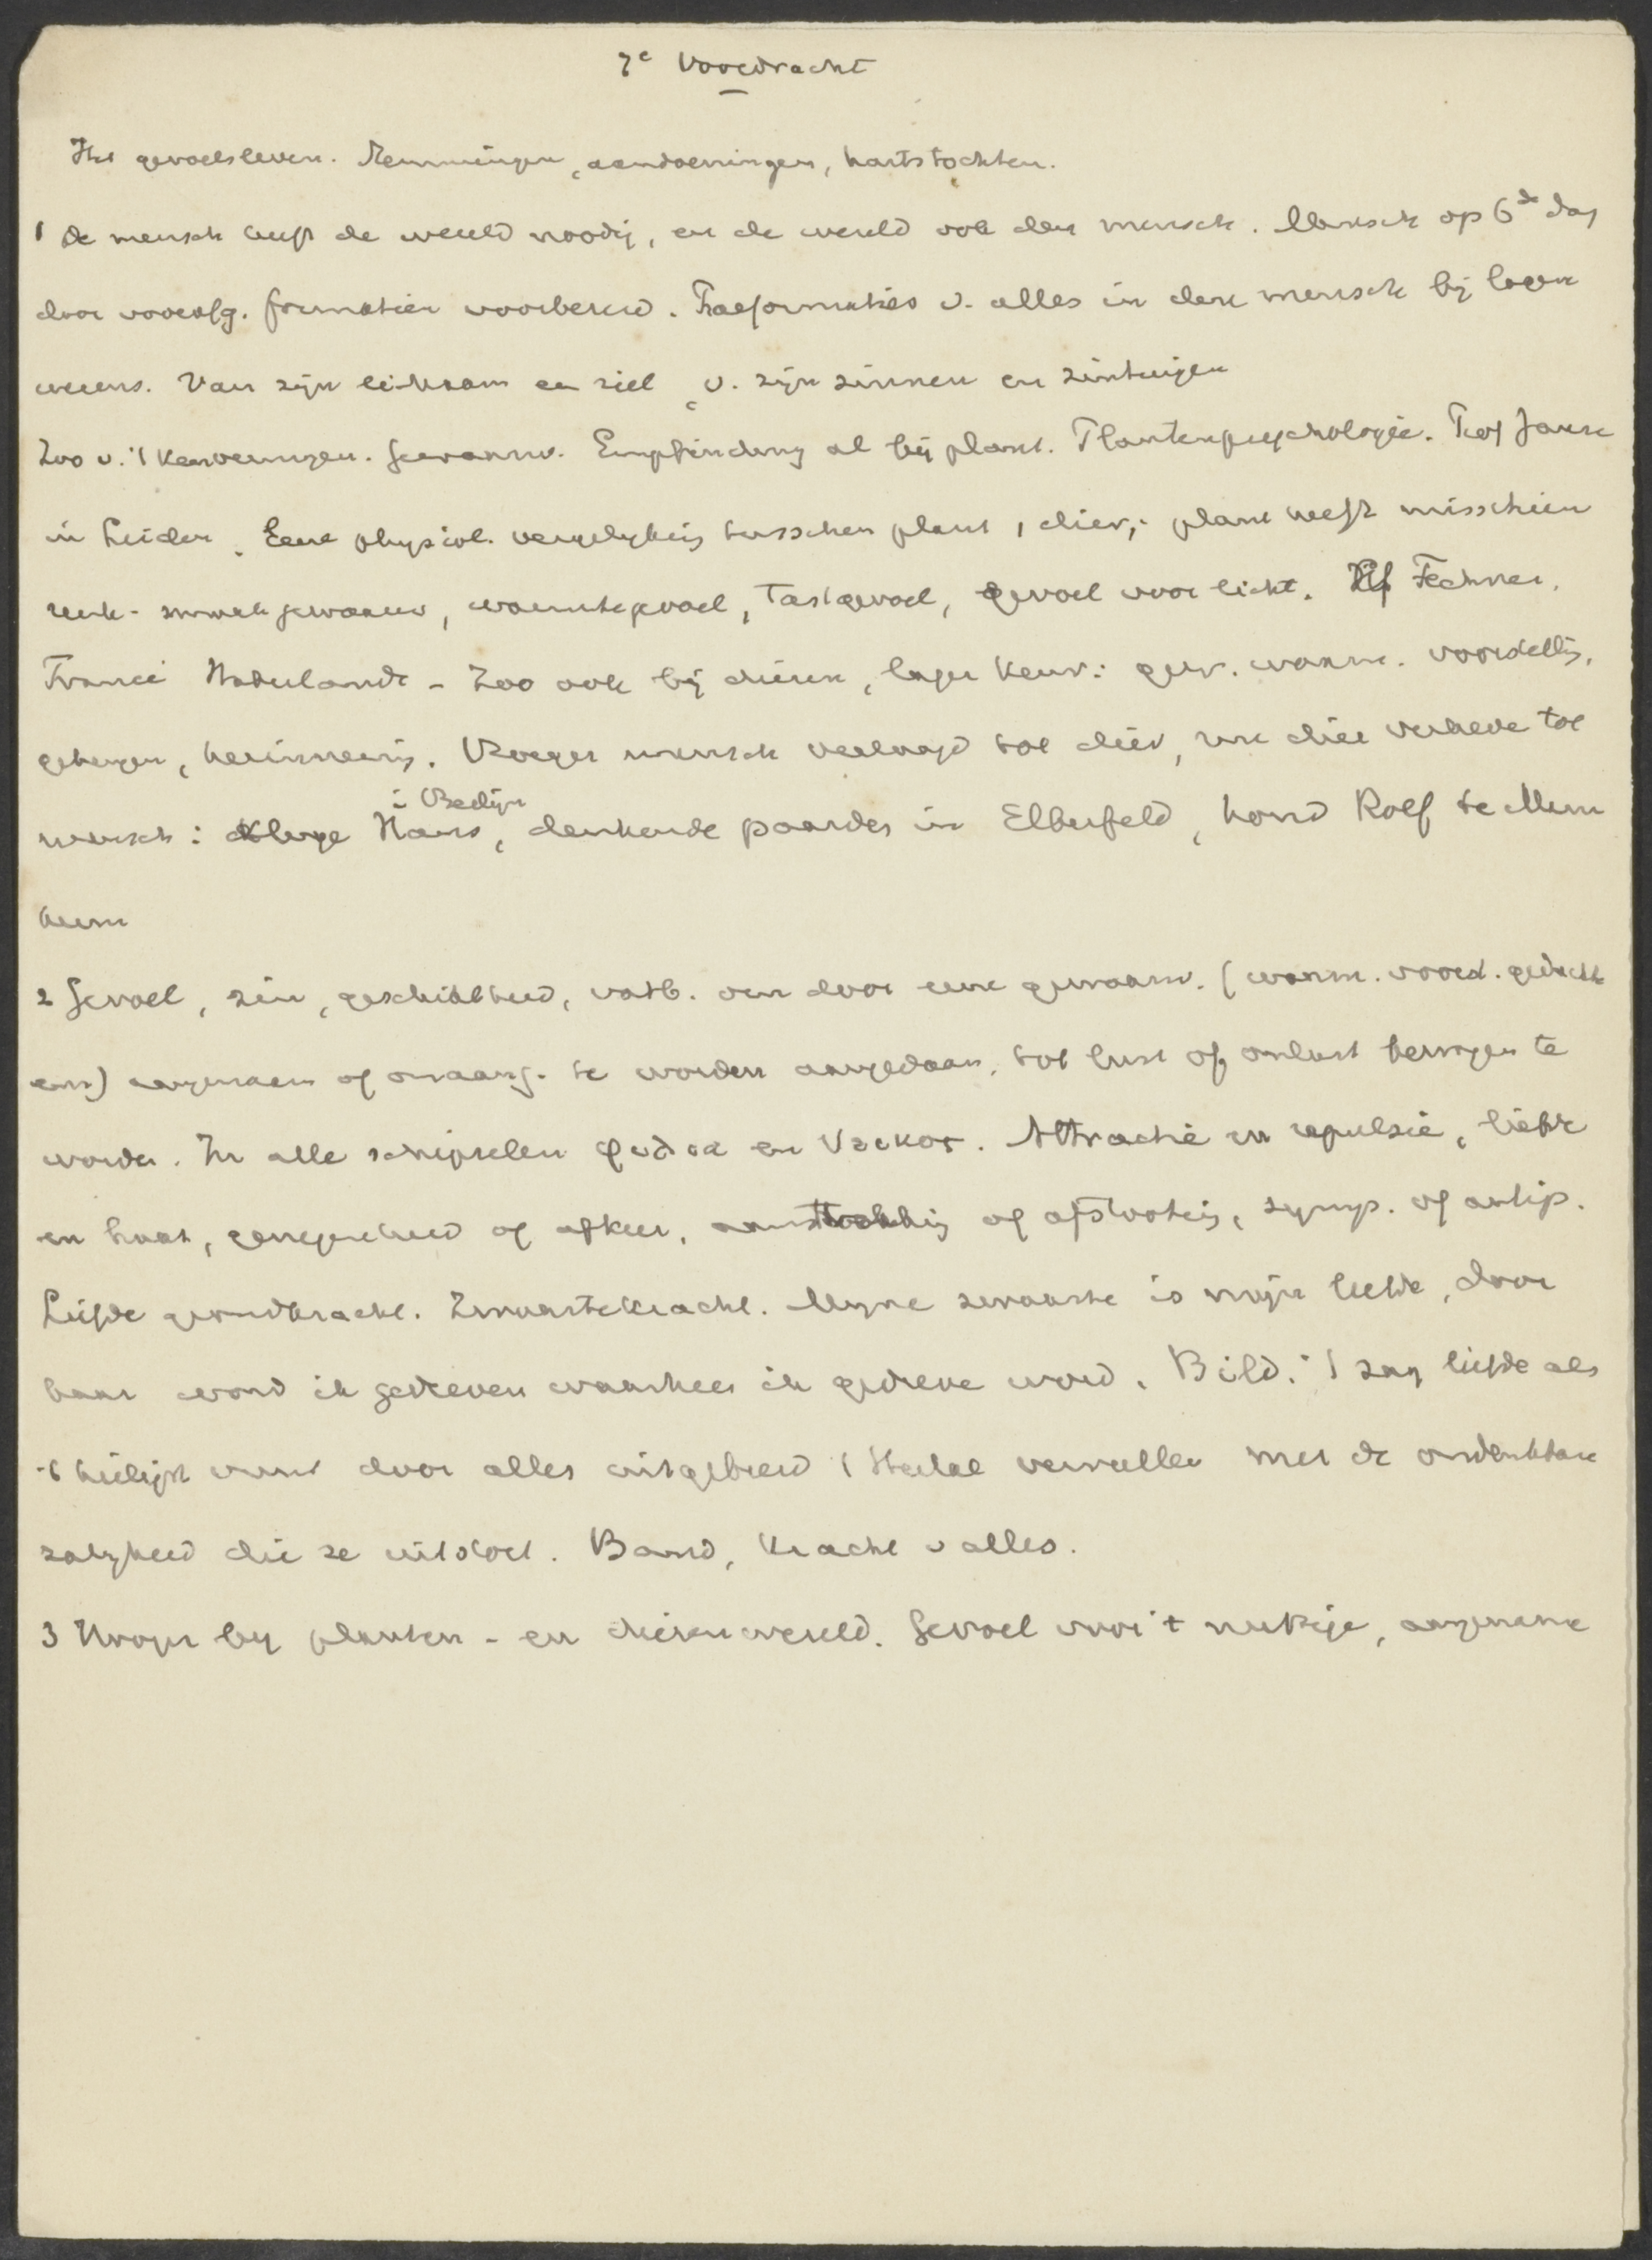 7e Voordracht
Het gevoelsleven. Stemmingen, aandoeningen, hartstochten.
1 De mensch heeft de wereld noodig, en de wereld ook den mensch. Mensch op 6de dag
door voorafg. formatien voorbereid. Praeformaties v. alles in den mensch bij lagere
wezens. Van zijn lichaam en ziel, v. zijn zinnen en zintuigen
Zoo v. 't kenvermogen. Gewaarw. Empfindung al bij plant. Plantenpsychologie. Prof Janse
in Leiden. Eene physiol. vergelijking tusschen plant, dier; plant heeft misschien
reuk- smaakgewaarw, warmtegevoel, tastgevoel, gevoel voor licht. Fechner,
Francé Naturlands - Zoo ook bij dieren, lager kenv: gew. waarn. voorstellig,
geheugen, herinnering. Vroeger mensch verlaagd tot dier, nu dier verheve tot
mensch: Kluge Hans, i Berlijn denkende paarden in Elberfeld, hond Rolf te Mann
heim
2 Gevoel, zin, geschiktheid, vatb. om door eene gewaarw. (waarn. voorst. gedachte
enz) aangenaam of onaang. te worden aangedaan, tot lust of onlust bewogen te
worden. In alle schepselen φιλια en νεικος. Attractie en repulsie, liefde
en haat, genegenheid of afkeer, aantrekking of afstooting, symp. of antip.
Liefde grondkracht. Zwaartekracht. Mijne zwaarte is mijn liefde, door
haar word ik gedreven waarheen ik gedreve word. Bild. 'I zag liefde als
't heiligst vuur door alles uitgebreid 't Heelal vervullen met de ondenkbare
zaligheid die ze uitstort. Band, kracht v alles.
3 Vroger bij planten- en dierenwereld. Gevoel voor 't nuttige, aangename